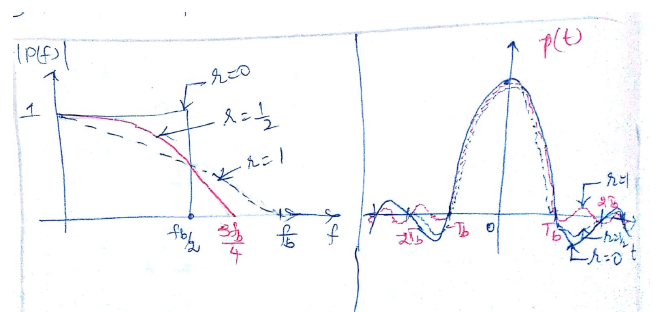 |P(f)|
1
r=0
r=1/2
r=1
fb/2
3fb/4
fb
f
p(t)
-2Tb
-Tb
0
Tb
2Tb
r=1
r=1/2
r=0
t